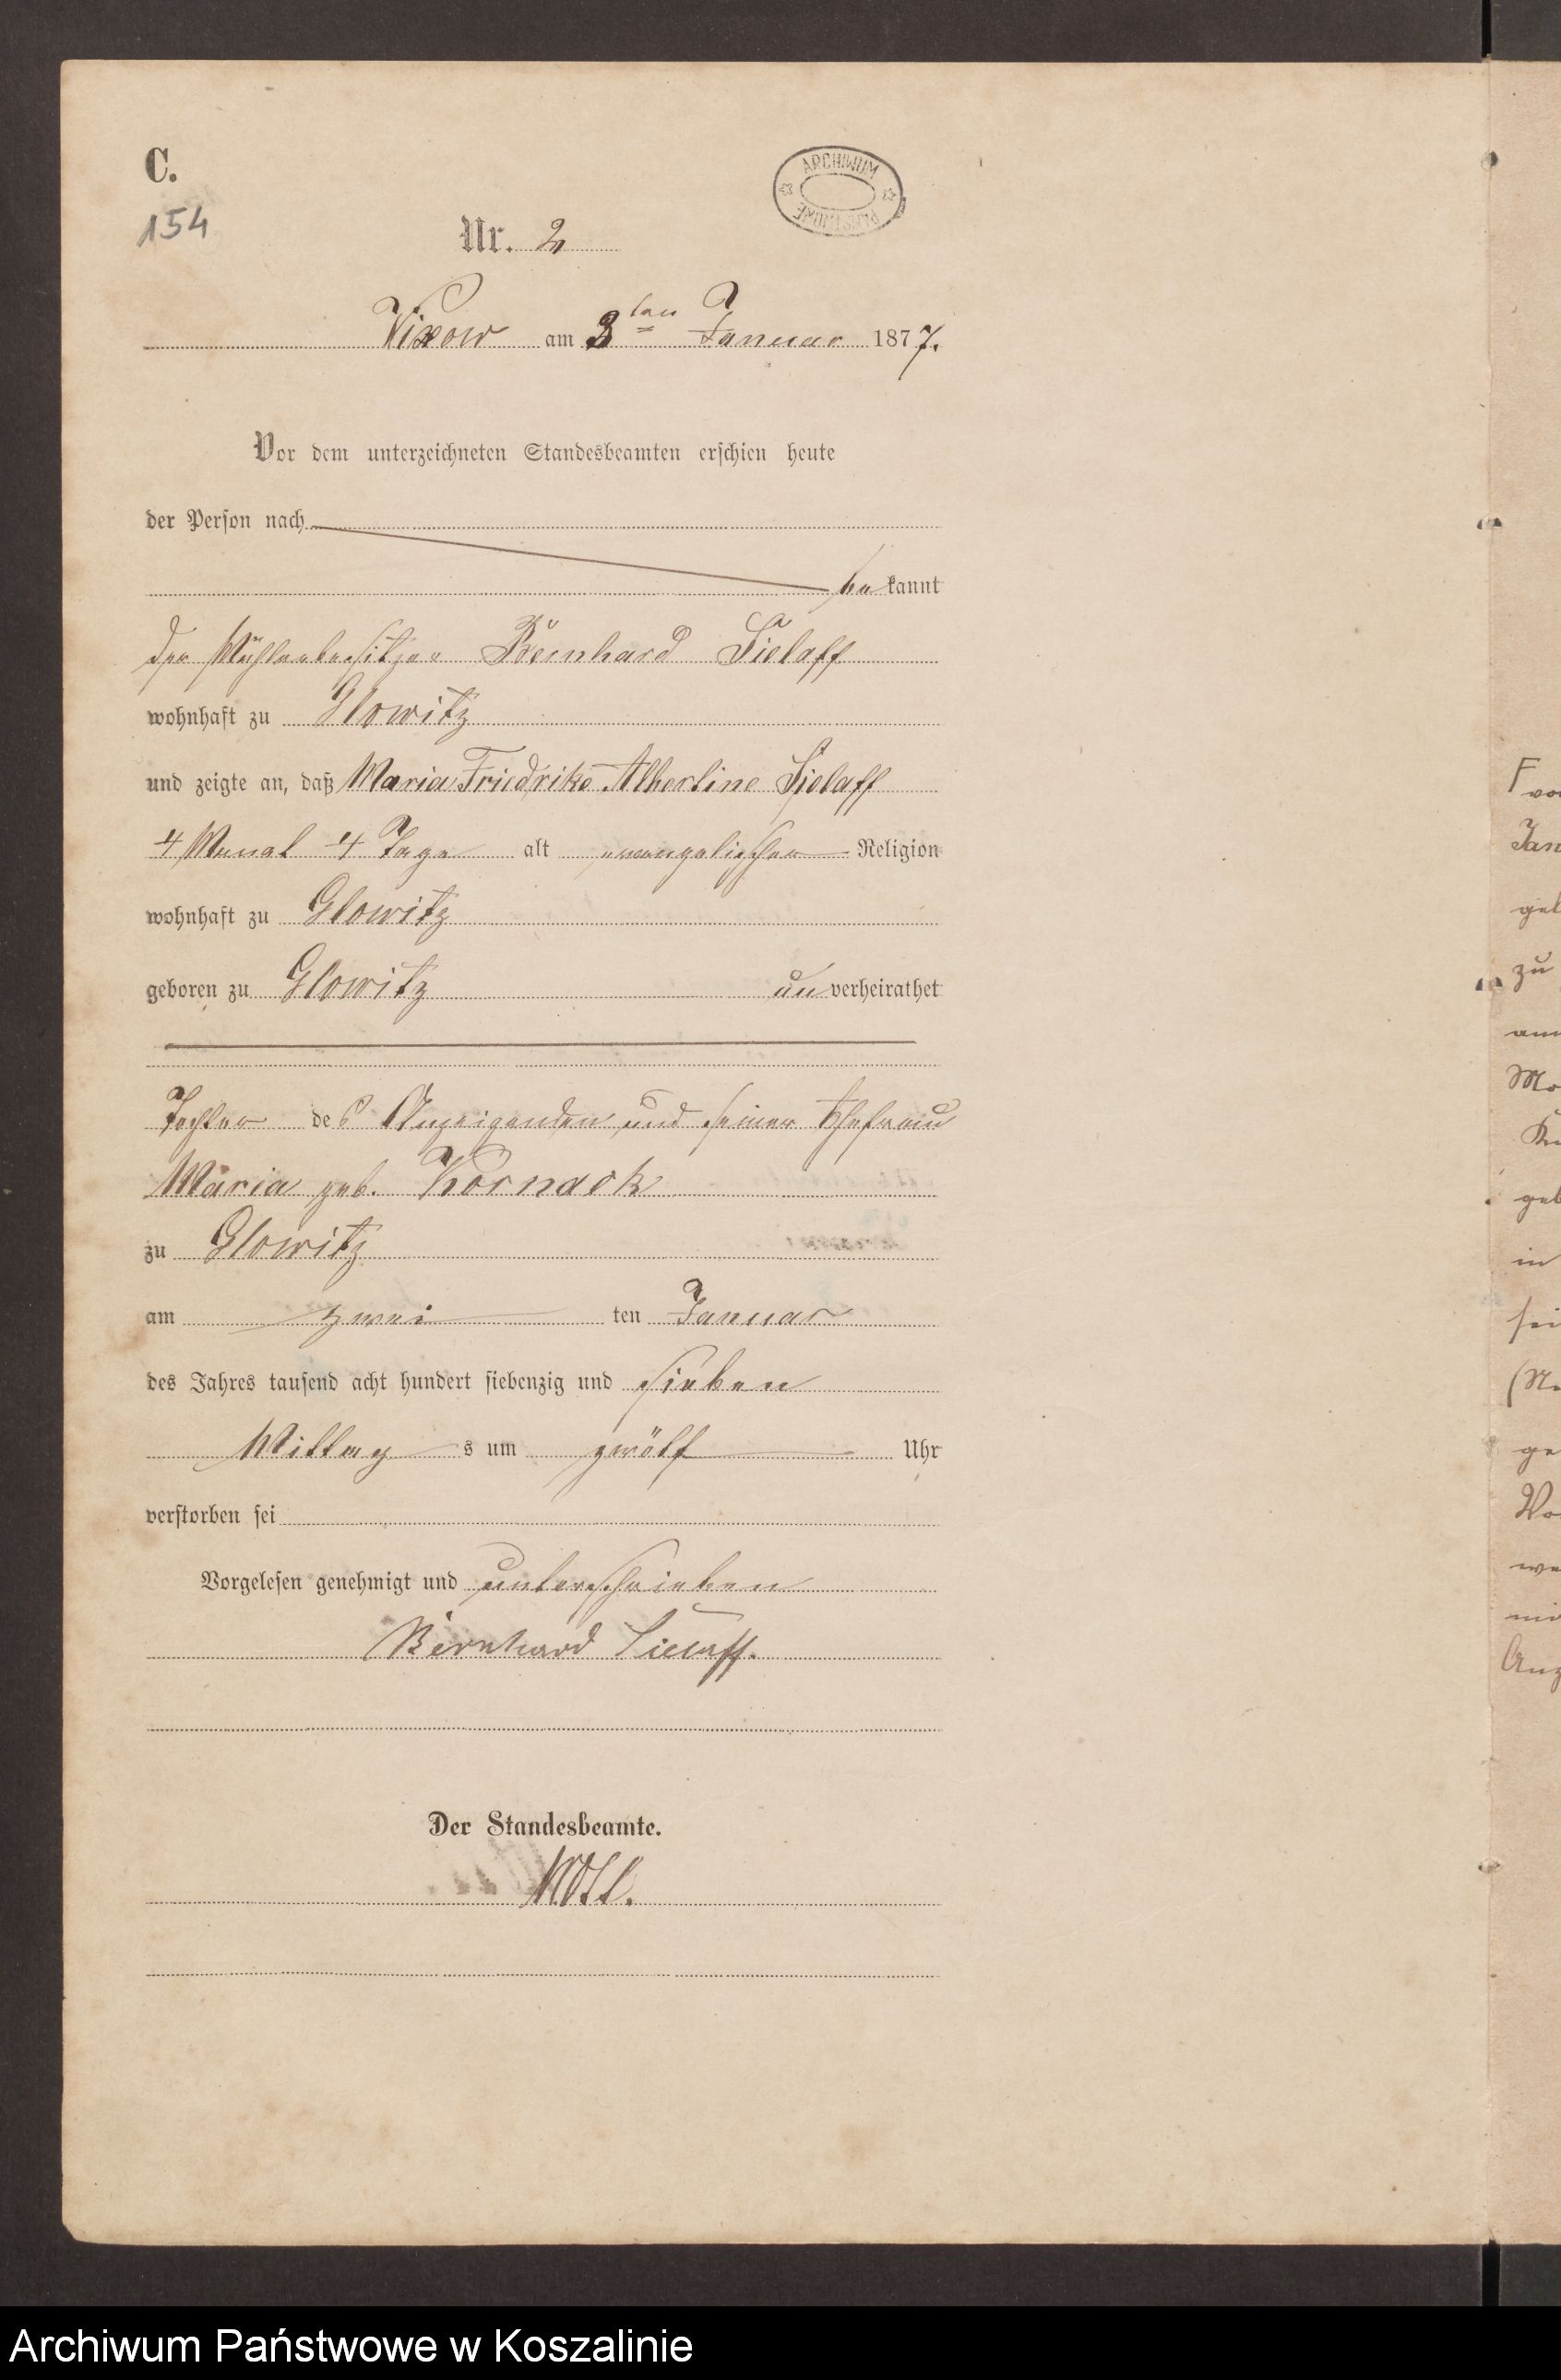 C.
154
ARCHIWUM
PAŃSTWOWE
Nr. 2
Vixow am 3ten Januar 1877.
Vor dem unterzeichneten Standesbeamten erschien heute
der Person nach
bekannt
der Mühlenbesitzer Bernhard Sielaff
wohnhaft zu Glowitz
und zeigte an, daß Maria Friedrike Albertine Sielaff
4 Monat 4 Tage alt evangelischer Religion
wohnhaft zu Glowitz
geboren zu Glowitz unverheirathet
Tochter des Anzeigenden und seiner Ehefrau
Maria geb. Kornack
zu Glowitz
am zwei ten Januar
des Jahres tausend acht hundert siebenzig und sieben
Mittags um zwölf Uhr
verstorben sei
Vorgelesen genehmigt und unterschrieben
Bernhard Sielaff.
Der Standesbeamte.
F
Jan
zu
in
Archiwum Państwowe w Koszalinie